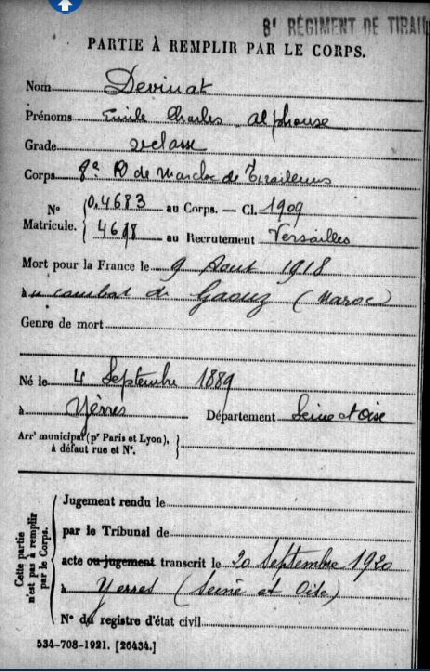 8e RÉGIMENT DE TIRAIL
PARTIE À REMPLIR PAR LE CORPS.
Nom Devinat
Prénoms Emile Charles Alphonse
Grade 2e classe
Corps 8e R de Marche de Tirailleurs
No 0.4683 au Corps. — Cl. 1909
Matricule. 4618 au Recrutement Versailles
Mort pour la France le 9 Aout 1918
au combat de Gaouz (Maroc)
Genre de mort
Né le 4 Septembre 1889
à Yères Département Seine et Oise
Arrt municipal (pr Paris et Lyon),
à défaut rue et No.
Cette partie
n'est pas à remplir
par le Corps.
Jugement rendu le
par le Tribunal de
acte ou jugement transcrit le 20 Septembre 1920
à Yerres (Seine et Oise)
No du registre d'état civil
534-708-1921. [26434.]